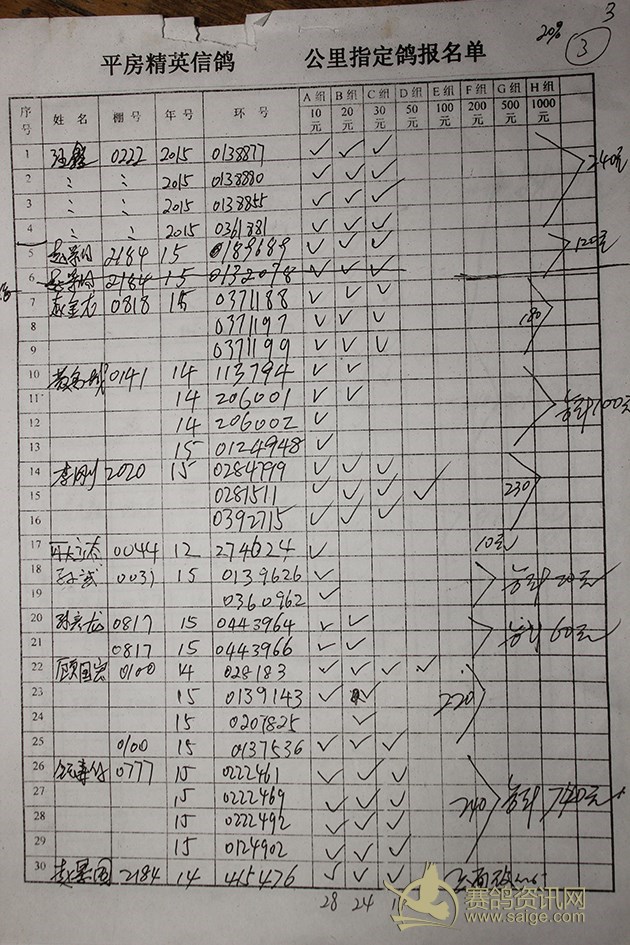 3
20% 3
平房精英信鸽 公里指定鸽报名单
序号 姓名 棚号 年号 环号 A组10元 B组20元 C组30元 D组50元 E组100元 F组200元 G组500元 H组1000元
1 0222 2015 0138877 ✓ ✓ ✓
2 〃 〃 2015 0138880 ✓ ✓ ✓ 240元
3 〃 〃 2015 0138855 ✓ ✓ ✓
4 〃 〃 2015 0361881 ✓ ✓ ✓
5 2184 15 0189689 ✓ ✓ ✓ 120元
6 2184 15 0132078 ✓ ✓ ✓
7 赵金龙 0818 15 0371188 ✓ ✓ ✓
8 0371197 ✓ ✓ ✓ 180
9 0371199 ✓ ✓ ✓
10 0141 14 113794 ✓ ✓
11 14 206001 ✓ ✓ 100元
12 14 206002 ✓
13 15 0124948 ✓
14 李刚 2020 15 0284799 ✓ ✓ ✓
15 0281511 ✓ ✓ ✓ ✓ 230
16 0392715 ✓ ✓ ✓
17 0044 12 274624 ✓ 10元
18 0031 15 0139626 ✓ 20元
19 0360962 ✓
20 0817 15 0443964 ✓ ✓ 60元
21 0817 15 0443966 ✓ ✓
22 顾国忠 0100 14 028183 ✓ ✓ ✓ ✓
23 15 0139143 ✓ ✓ 220
24 15 0207825 ✓
25 0100 15 0137536 ✓ ✓ ✓
26 0777 15 0222461 ✓ ✓ ✓
27 15 0222469 ✓ ✓ ✓ 240
28 15 0222492 ✓ ✓ ✓
29 15 0124902 ✓ ✓ ✓
30 赵景国 2184 14 415476 ✓ ✓ ✓
28 24
赛鸽资讯网
www.saige.com